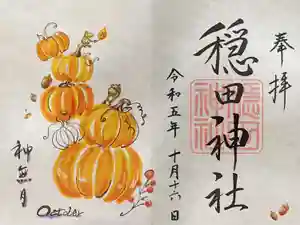 奉拝
穏田神社
令和五年 十月十六日
神無月
October